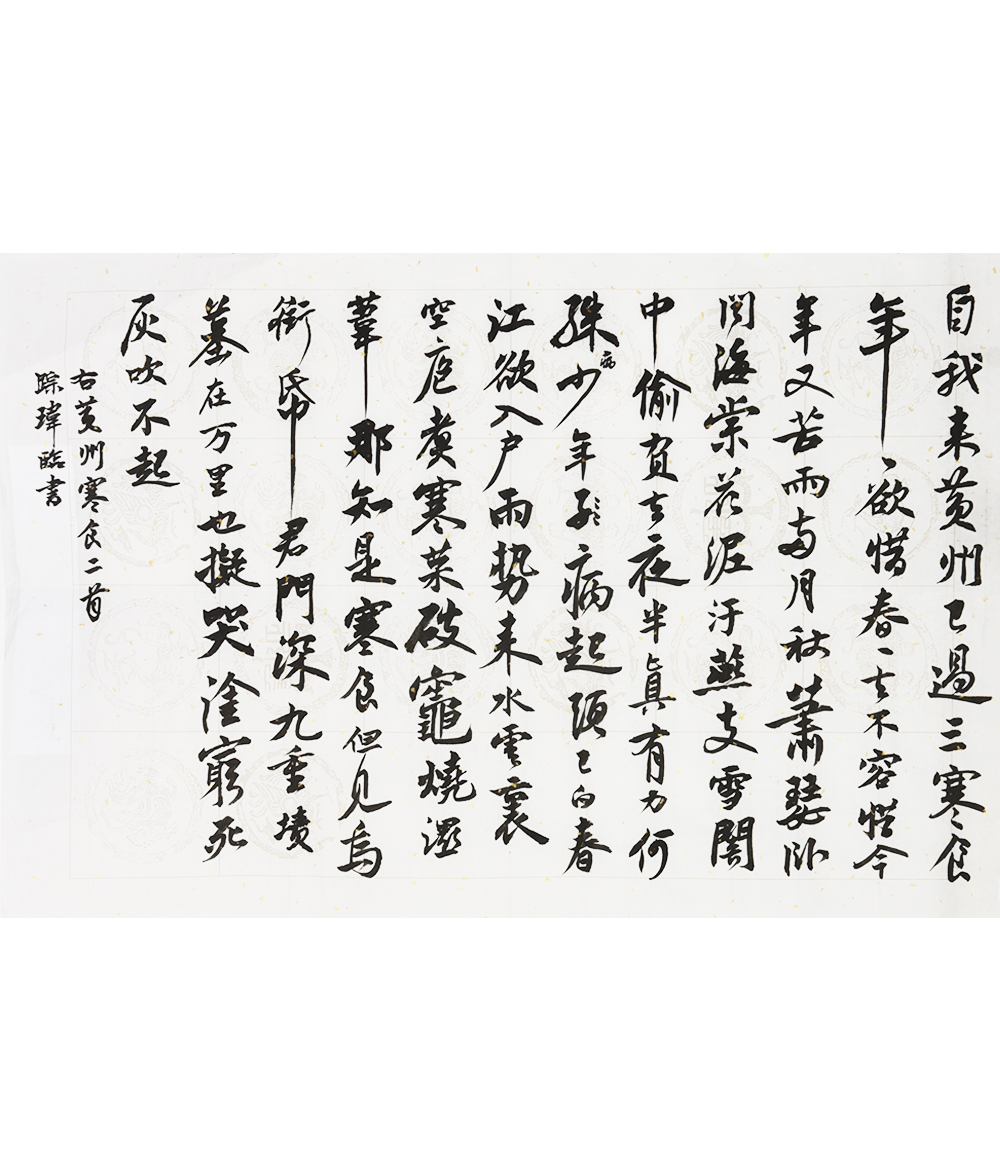 自我来黄州已過三寒食
年〻欲惜春〻去不容惜今
年又苦雨兩月秋蕭瑟卧
聞海棠花泥汙燕支雪闇
中偷負去夜半真有力何
殊少年子病起頭已白春
病
江欲入户雨勢来水雲裏
空庖煮寒菜破竈燒濕
葦那知是寒食但見烏
銜帋君門深九重墳
墓在万里也擬哭塗窮死
灰吹不起
右黄州寒食二首
踪瑋臨書